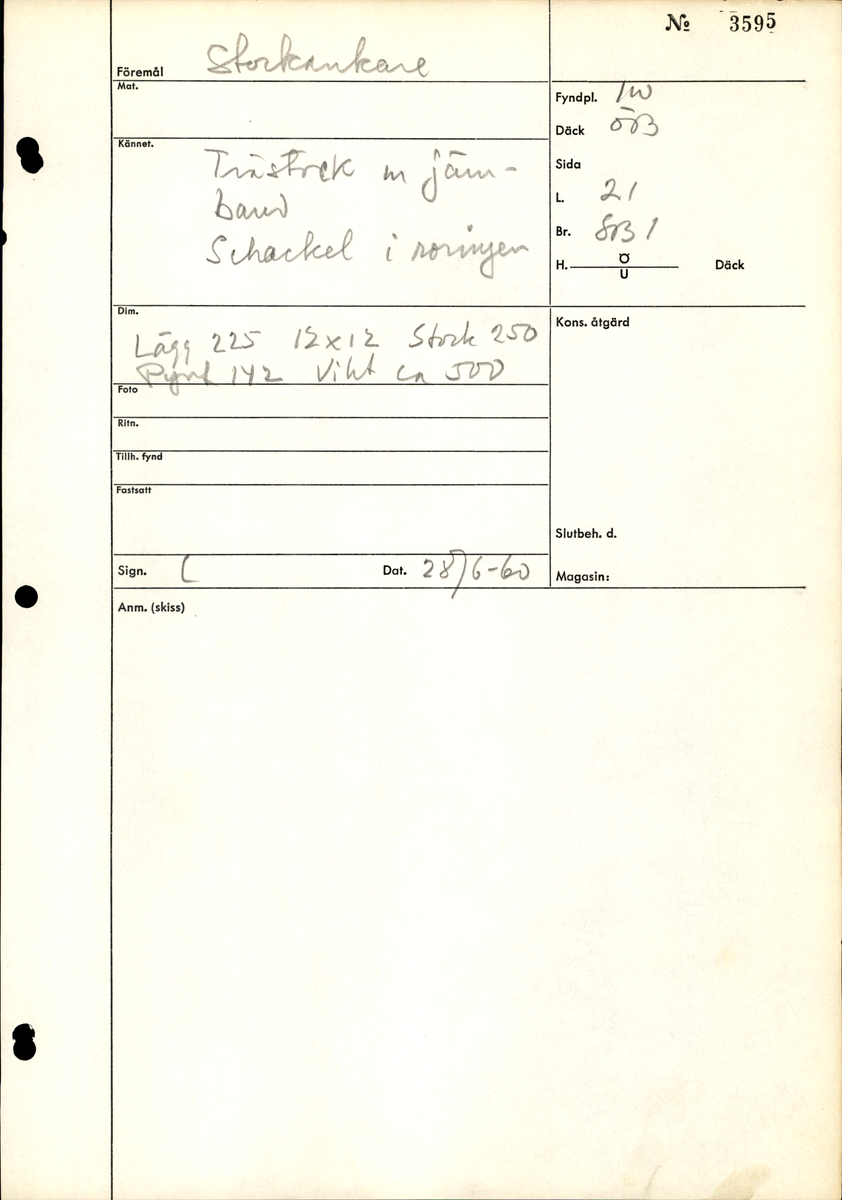 № 3595
Föremål Stockankare
Mat.
Kännet. Trästock m järn-
band
Schackel i roringen
Dim.
Lägg 225 12x12 Stock 250
Pynt 142 Vikt ca 500
Foto
Ritn.
Tillh. fynd
Fastsatt
Sign. L Dat. 28/6-60
Fyndpl.
Däck ÖB
Sida
L. 21
Br. SB 1
H. Ö Däck
U
Kons. åtgärd
Slutbeh. d.
Magasin:
Anm. (skiss)